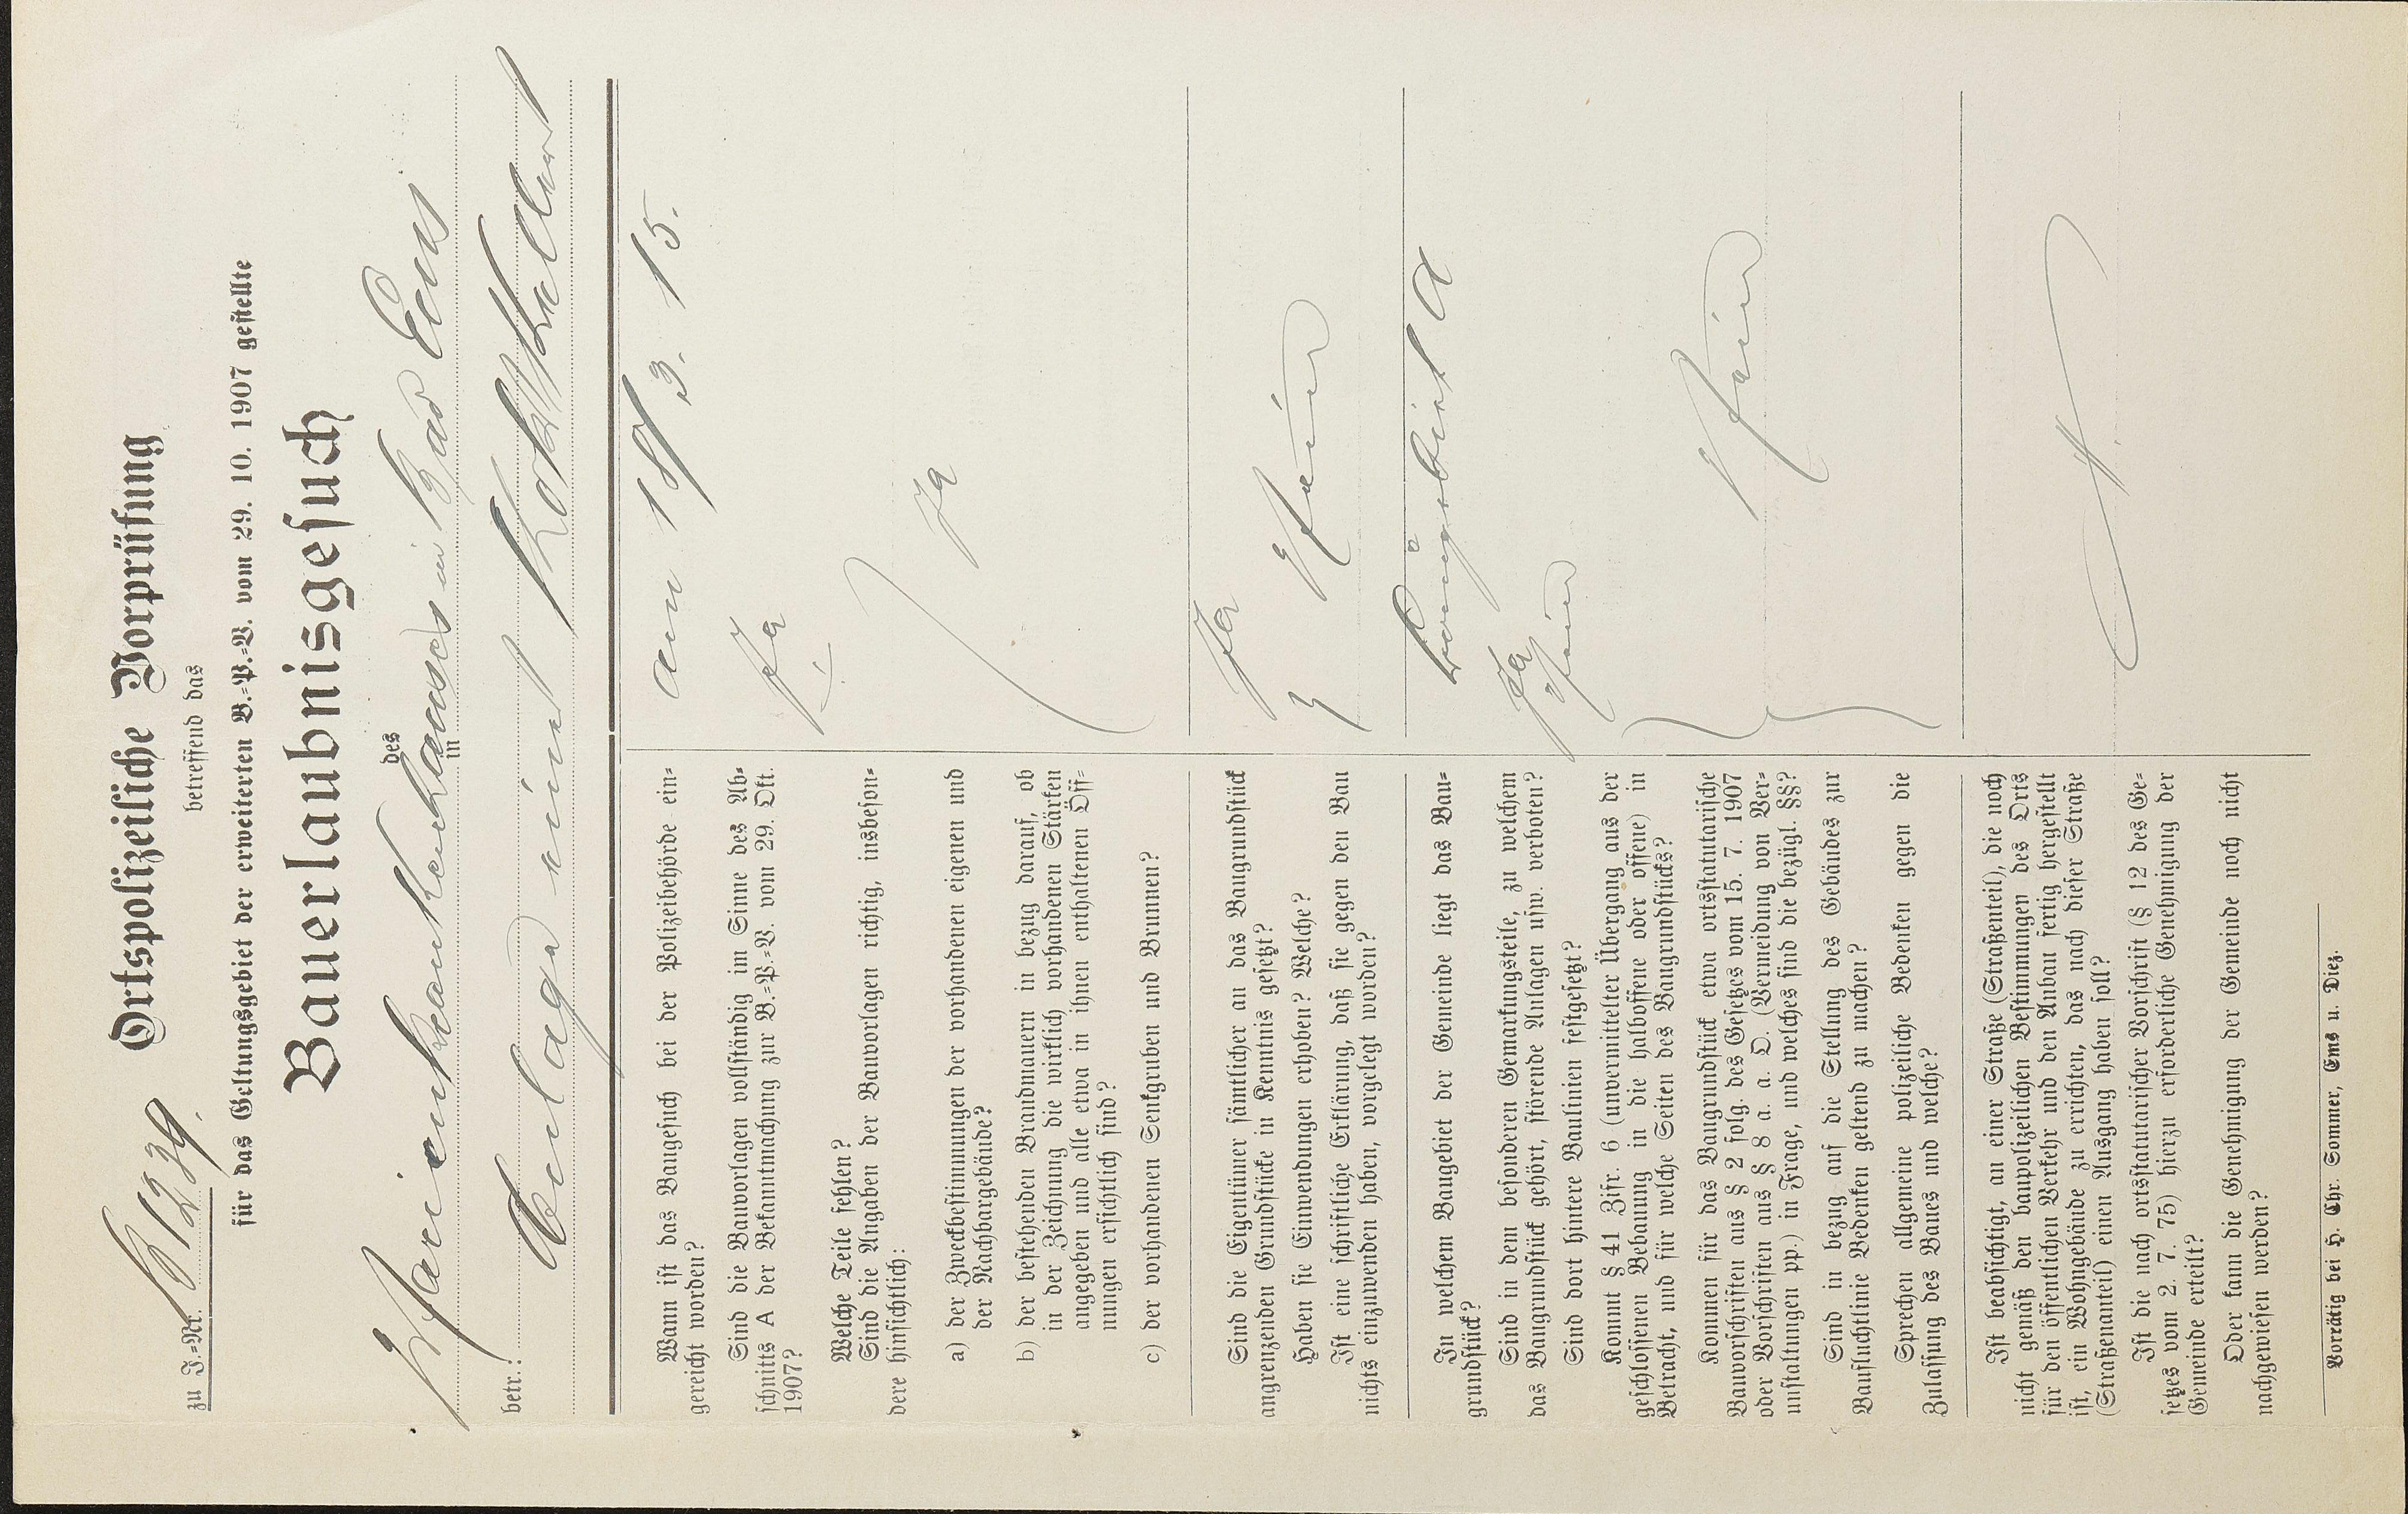 zu J.=Nr. B 1239.
Ortspolizeiliche Vorprüfung
betreffend das
für das Geltungsgebiet der erweiterten B.=P.=V. vom 29. 10. 1907 gestellte
Bauerlaubnisgesuch
des
Marienkrankenhauses in Bad Ems
in
betr.: Anlage eines
Wann ist das Baugesuch bei der Polizeibehörde ein=
gereicht worden?
am 18/3. 15.
Sind die Bauvorlagen vollständig im Sinne des Ab=
schnitts A der Bekanntmachung zur B.=P.=V. vom 29. Okt.
1907?
Ja
Welche Teile fehlen?
Sind die Angaben der Bauvorlagen richtig, insbeson=
dere hinsichtlich:
a) der Zweckbestimmungen der vorhandenen eigenen und
der Nachbargebäude?
b) der bestehenden Brandmauern in bezug darauf, ob
in der Zeichnung die wirklich vorhandenen Stärken
angegeben und alle etwa in ihnen enthaltenen Öff=
nungen ersichtlich sind?
c) der vorhandenen Senkgruben und Brunnen?
Ja
Sind die Eigentümer sämtlicher an das Baugrundstück
angrenzenden Grundstücke in Kenntnis gesetzt?
Ja
Haben sie Einwendungen erhoben? Welche?
Ist eine schriftliche Erklärung, daß sie gegen den Bau
nichts einzuwenden haben, vorgelegt worden?
Nein
In welchem Baugebiet der Gemeinde liegt das Bau=
grundstück?
Baugebiet A
Sind in dem besonderen Gemarkungsteile, zu welchem
das Baugrundstück gehört, störende Anlagen usw. verboten?
Ja
Sind dort hintere Baulinien festgesetzt?
Nein
Kommt § 41 Zifr. 6 (unvermittelter Übergang aus der
geschlossenen Bebauung in die halboffene oder offene) in
Betracht, und für welche Seiten des Baugrundstücks?
Kommen für das Baugrundstück etwa ortsstatutarische
Bauvorschriften aus § 2 folg. des Gesetzes vom 15. 7. 1907
oder Vorschriften aus § 8 a. a. O. (Vermeidung von Ver=
unstaltungen pp.) in Frage, und welches sind die bezügl. §§?
Sind in bezug auf die Stellung des Gebäudes zur
Baufluchtlinie Bedenken geltend zu machen?
Sprechen allgemeine polizeiliche Bedenken gegen die
Zulassung des Baues und welche?
Nein
Ist beabsichtigt, an einer Straße (Straßenteil), die noch
nicht gemäß den baupolizeilichen Bestimmungen des Orts
für den öffentlichen Verkehr und den Anbau fertig hergestellt
ist, ein Wohngebäude zu errichten, das nach dieser Straße
(Straßenanteil) einen Ausgang haben soll?
Ist die nach ortsstatutarischer Vorschrift (§ 12 des Ge=
setzes vom 2. 7. 75) hierzu erforderliche Genehmigung der
Gemeinde erteilt?
Oder kann die Genehmigung der Gemeinde noch nicht
nachgewiesen werden?
Vorrätig bei H. Chr. Sommer, Ems u. Diez.